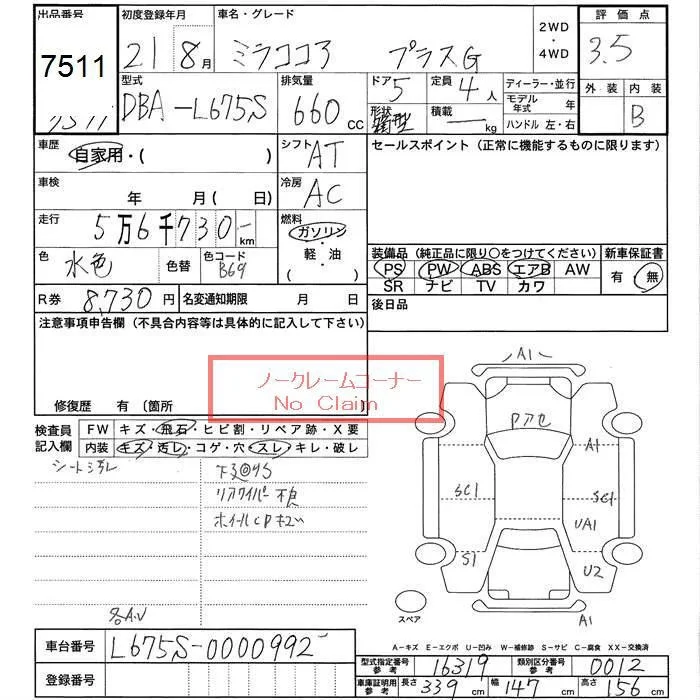 出品番号 初度登録年月 車名・グレード 2WD ・ 4WD 評価点
7511 21 8月 ミラココア プラスG 3.5
型式 排気量 ドア 定員 ディーラー・並行 外装 内装
DBA-L675S 660 cc 5 4人 モデル年式 年 B
形状 箱型 積載 ― kg ハンドル 左・右
車歴 自家用・( ) シフト AT セールスポイント(正常に機能するものに限ります)
車検 年 月(日) 冷房 AC
走行 5万6千730- km 燃料 ガソリン・軽・油 ( )
色 水色 色替 色コード B69
装備品(純正品に限り○をつけてください) 新車保証書
PS PW ABS エアB AW 有 無
SR ナビ TV カワ
R券 8,730円 名変通知期限 月 日 後日品
注意事項申告欄(不具合内容等は具体的に記入して下さい)
ノークレームコーナー
No Claim
修復歴 有 〔箇所 〕
検査員記入欄 FW キズ・飛石・ヒビ割・リペア跡・X要
内装 キズ・汚レ・コゲ・穴・スレ・キレ・破レ
シート汚レ
リアワイパー不良
A1
A1
SC1
SC1
UA1
S1
U2
A1
スペア
A-キズ E-エクボ U-凹み W-補修跡 S-サビ C-腐食 XX-交換済
車台番号 L675S-0000992
登録番号
型式指定番号 参考 16319 類別区分番号 参考 0012
車庫証明用 参考 長さ 339 cm 幅 147 cm 高さ 156 cm